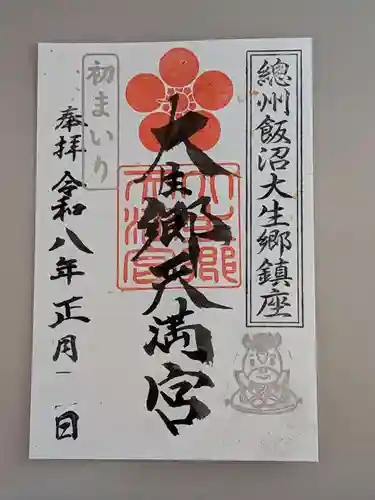 總州飯沼大生郷鎮座
大生郷天満宮
初まいり
奉拝
令和八年正月二日